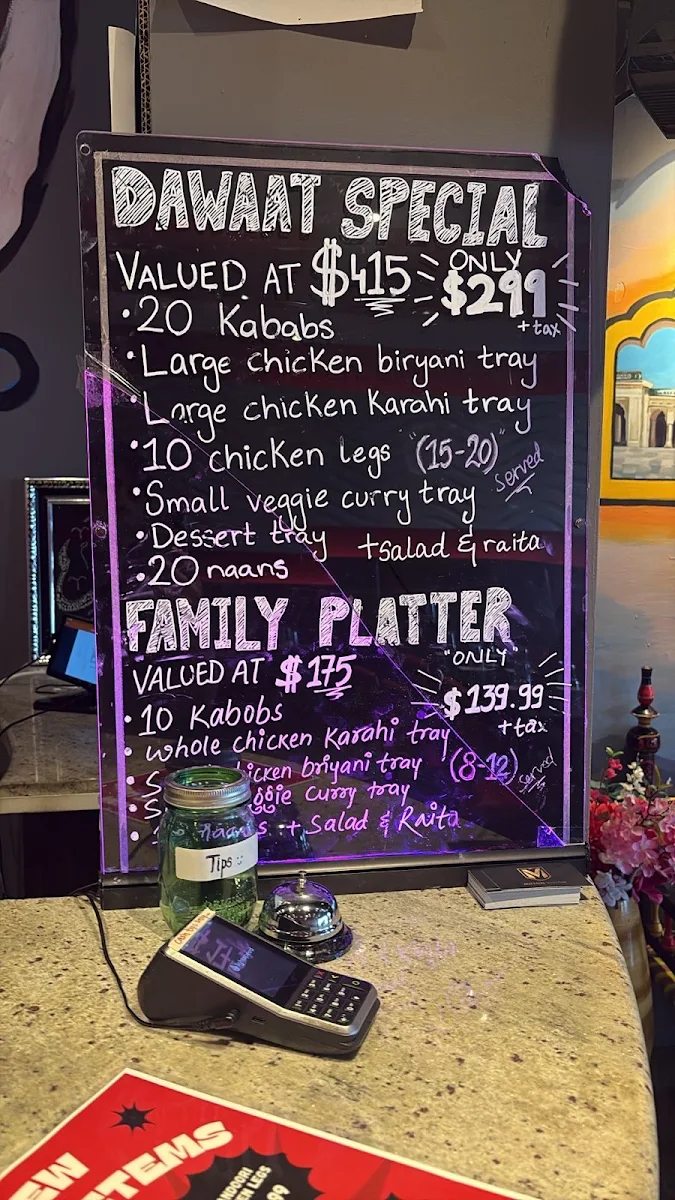 DAWAAT SPECIAL
VALUED AT $415 ONLY $299 + tax
• 20 Kababs
• Large chicken biryani tray
• Large chicken Karahi tray
• 10 chicken legs "(15-20)" served
• Small veggie curry tray
• Dessert tray + Salad & raita
• 20 naans
FAMILY PLATTER
VALUED AT $175 "ONLY" $139.99 + tax
• 10 Kabobs
• whole chicken Karahi tray
briyani tray (8-12) served
curry tray
+ Salad & Raita
Tips